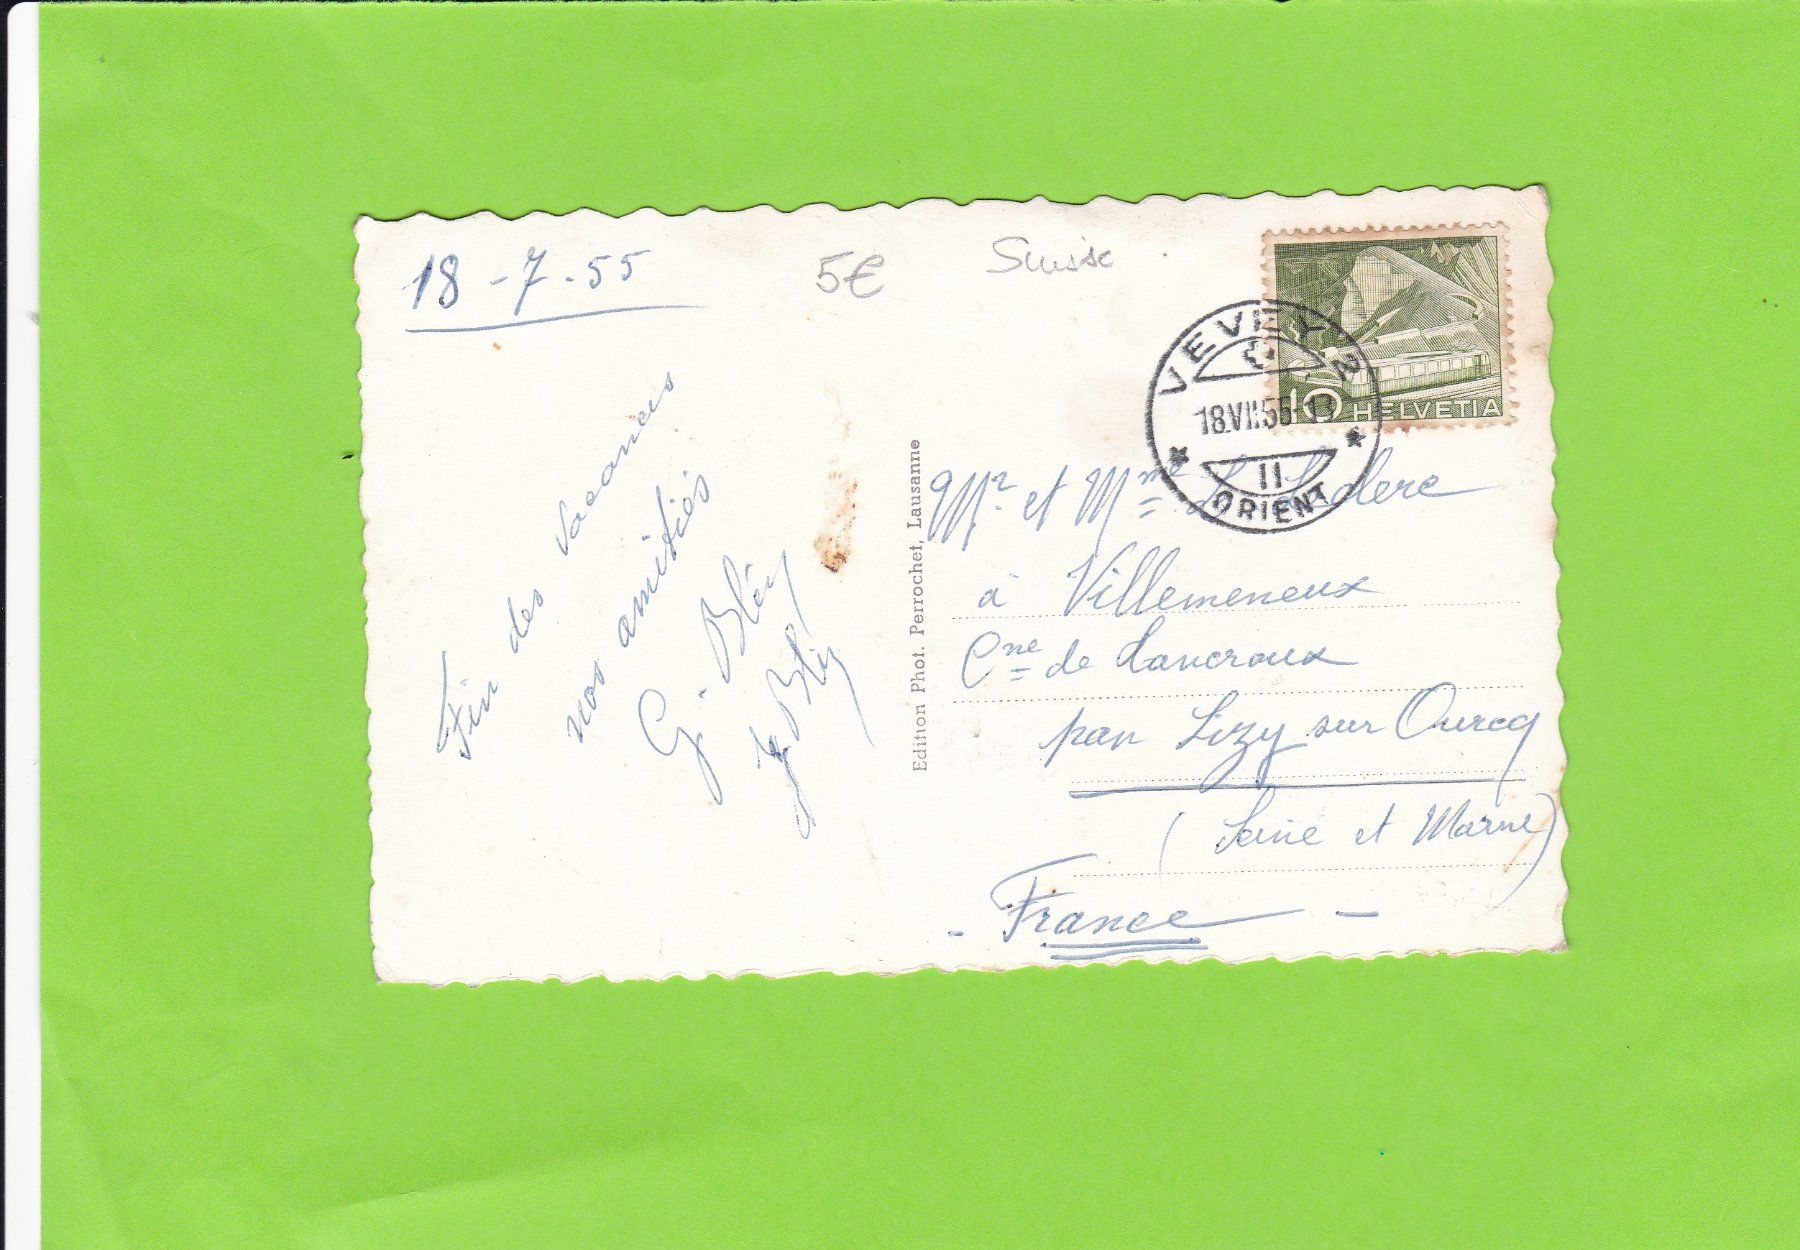 18-7-55
5€
Suisse
Fin des vacances
nos amitiés
G. Bléry
Bléry
Edition Phot. Perrochet, Lausanne
10 HELVETIA
VEVEY 2
18.VII.55
II
ORIENT
Mr et Mme Leclerc
à Villemeneux
Cne de
par Lizy sur Ourcq
(Seine et Marne)
- France -